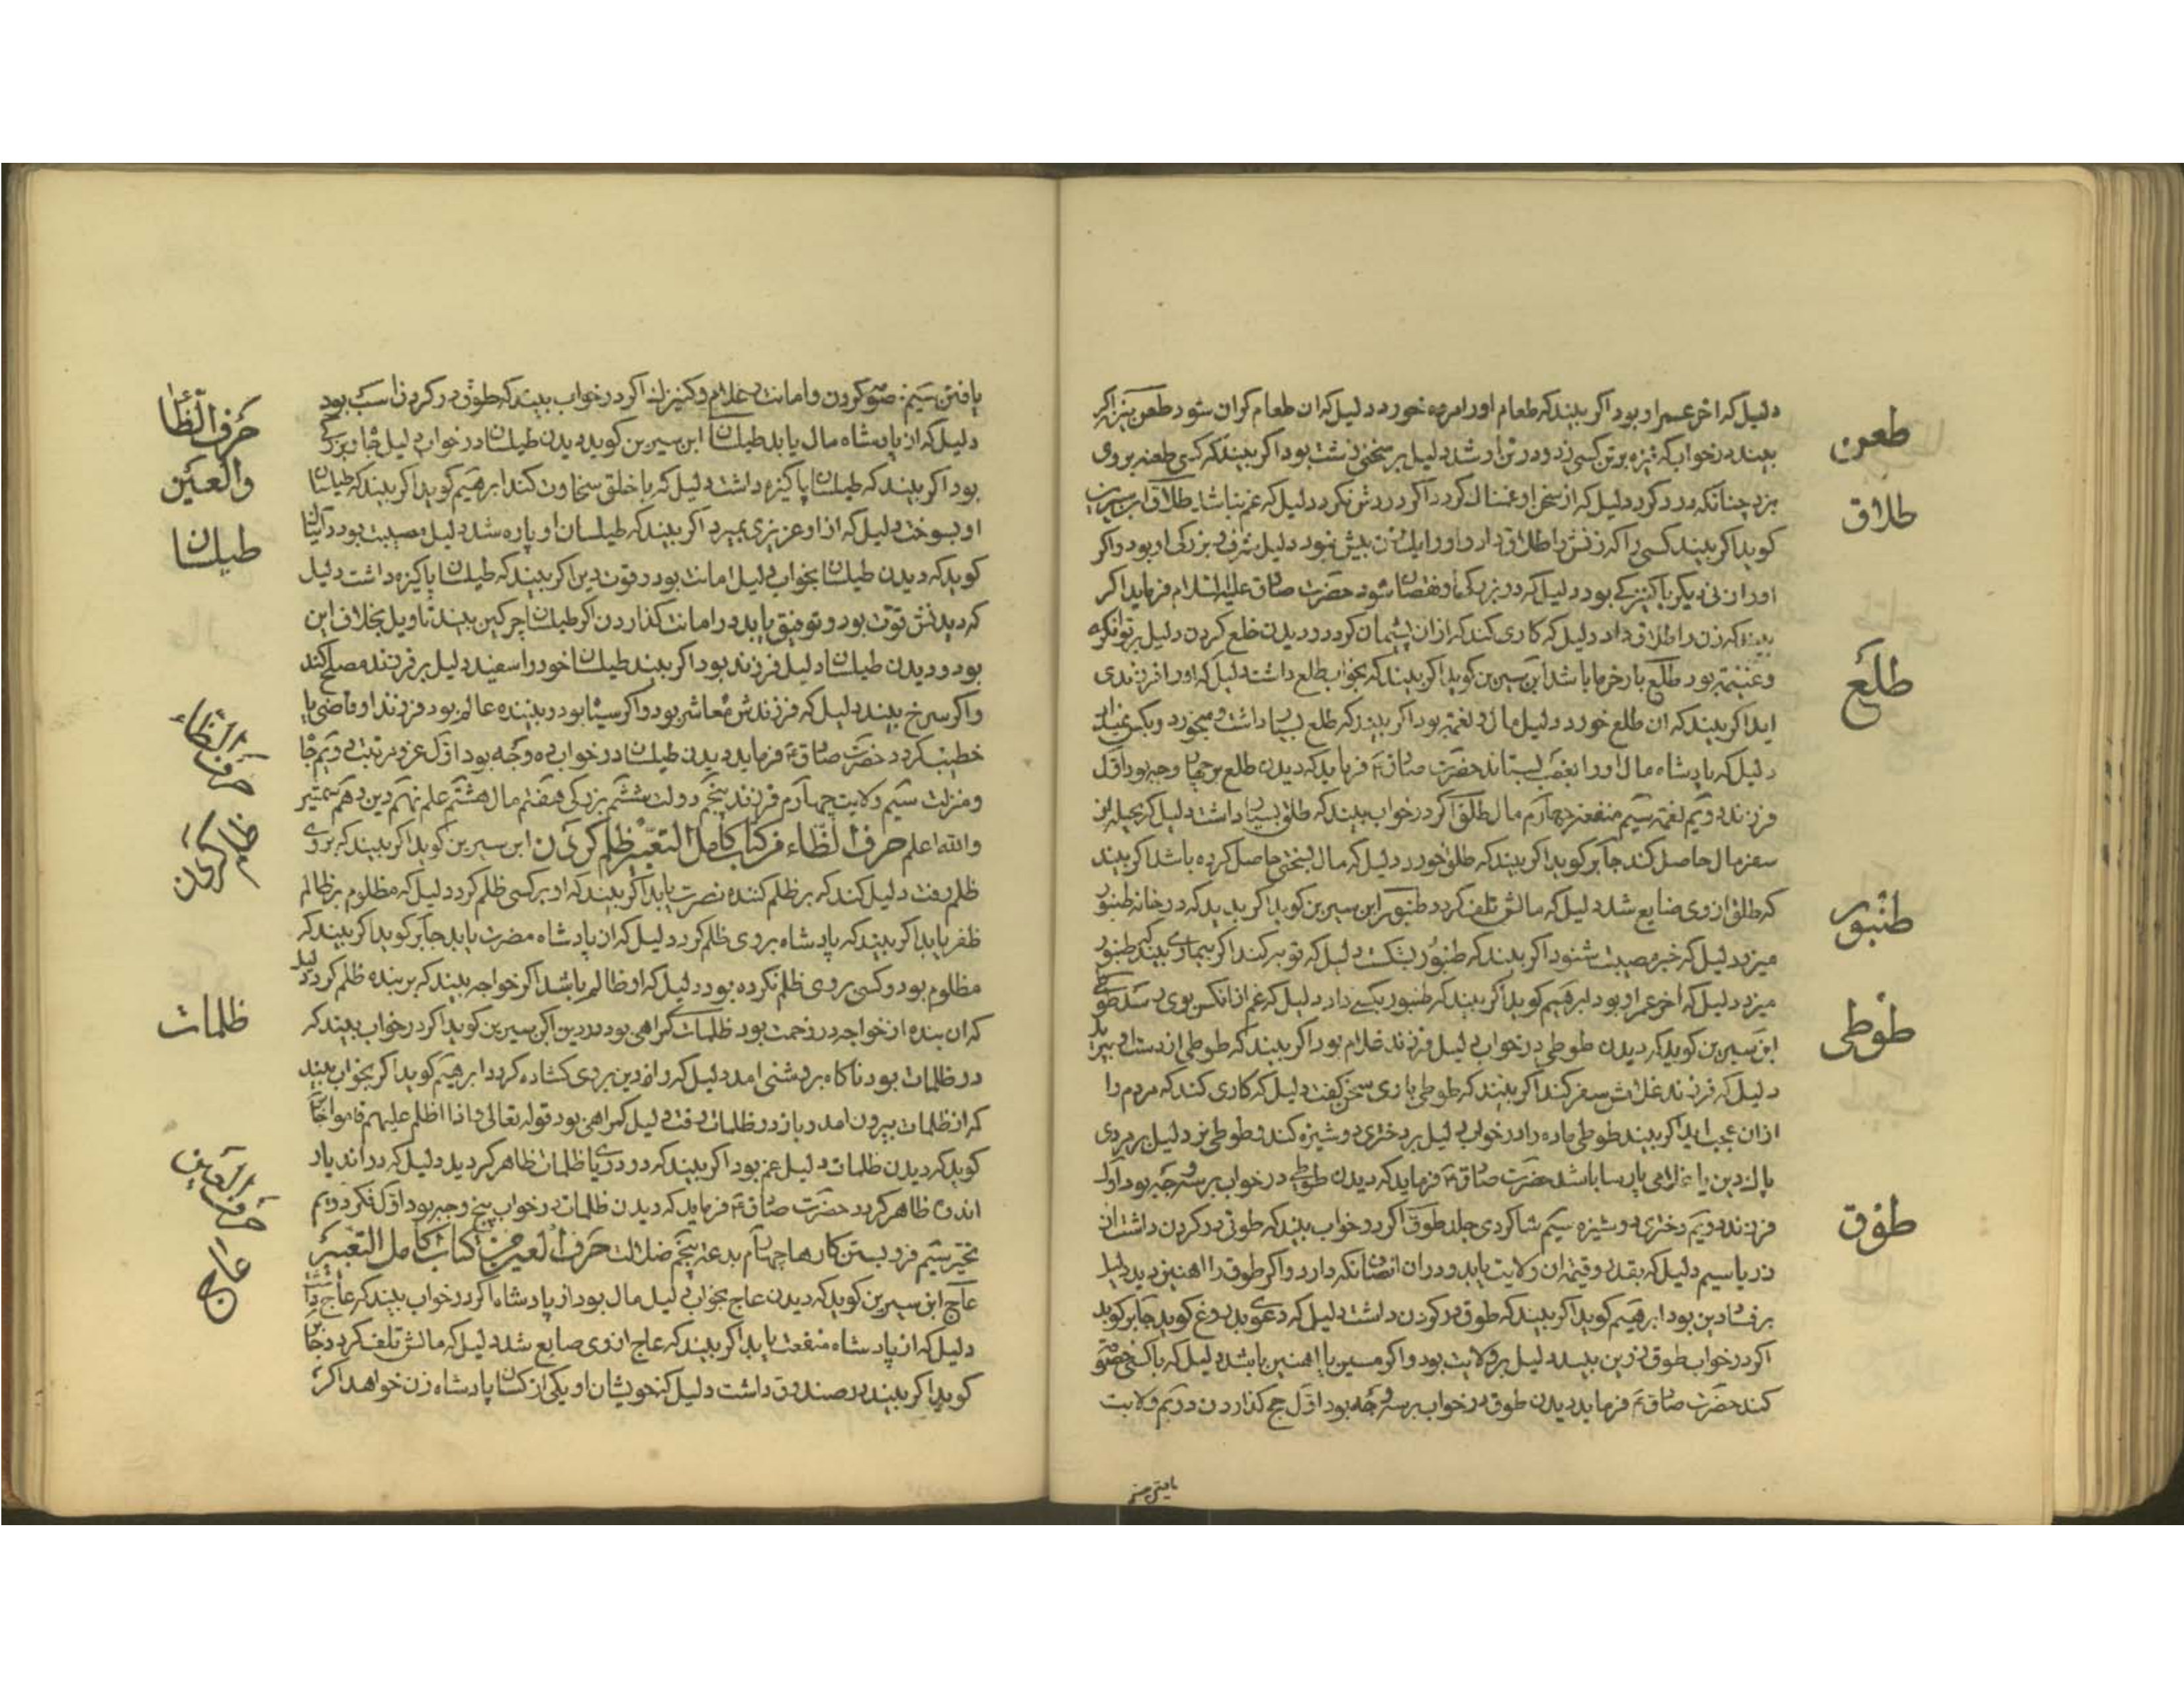 دلیل که اخر عمر او بود اکر بیند که طعام اورا مزه خورد دلیل که ان طعام کران شود طعن نیزه اکر
بیند در خواب که نیزه بر تن کسی زد و در تن او شد دلیل بر سخنی زشت بود اکر بیند که کسی طعنه بر وی
بزد چنانکه درد کرد دلیل که از سخن او غمناک کردد اکر دردش نکرد دلیل که غم نباشد طلاق ابن سیرین
کوید اکر بیند کسی را که زنش را طلاق داد و او را یک زن بیش نبود دلیل شرف و بزرکی او بود و اکر
او را زنی دیکر یا کنیزکی بود دلیل که در بزرکی او نقصان شود حضرت صادق علیه السلام فرماید اکر
بیند که زن را طلاق داد دلیل که کاری کند که از ان پشیمان کردد و دیدن خلع کردن دلیل بر توانکری
و غنیمت بود طلع بار خرما باشد ابن سیرین کوید اکر بیند که بخواب طلع داشت دلیل که او را فرزندی
اید اکر بیند که ان طلع خورد دلیل مال و نعمت بود اکر بیند که طلع بسیار داشت و میخورد و بکس نمیداد
دلیل که پادشاه مال او را بغصب بستاند حضرت صادق ع فرماید که دیدن طلع بر چهار وجه بود اول
فرزند دویم نعمت سیم منفعت چهارم مال طلق اکر در خواب بیند که طلق بسیار داشت دلیل که بحیله از
سفر مال حاصل کند جابر کوید اکر بیند که طلق خورد دلیل که مال بسختی حاصل کرده باشد اکر بیند
که طلق از وی ضایع شد دلیل که مالش تلف کردد طنبور ابن سیرین کوید اکر بیند که در خانه طنبور
میزد دلیل که خبر مصیبت شنود اکر بیند که طنبور بشکست دلیل که توبه کند اکر بیماری بیند که طنبور
میزد دلیل که اخر عمر او بود ابرهیم کوید اکر بیند که طنبور بکسی داد دلیل که غم از انکس بوی رسد طوطی
ابن سیرین کوید که دیدن طوطی در خواب دلیل فرزند و غلام بود اکر بیند که طوطی از دست او بپرید
دلیل که فرزند یا غلامش سفر کند اکر بیند که طوطی با وی سخن کفت دلیل که کاری کند که مردم را
از ان عجب اید اکر بیند طوطی ماده را در خواب دلیل بر دختری دوشیزه کند و طوطی نر دلیل بر مردی
پاک دین یا غلامی پارسا باشد حضرت صادق ع فرماید که دیدن طوطی در خواب بر سه وجه بود اول
فرزند دویم دختری دوشیزه سیم شاکردی جلد طوق اکر در خواب بیند که طوقی در کردن داشت از
زر یا سیم دلیل که بقدر و قیمت ان ولایت یابد و در ان انصاف نکه دارد و اکر طوق را اهنین دید دلیل
بر فساد دین بود ابرهیم کوید اکر بیند که طوق در کردن داشت دلیل که دعوی بدروغ کوید جابر کوید
اکر در خواب طوق زرین بیند دلیل بر ولایت بود و اکر مسین یا اهنین باشد دلیل که با کسی خصومت
کند حضرت صادق ع فرماید دیدن طوق در خواب بر سه وجه بود اول حج کذاردن دویم ولایت
طعن
طلاق
طلع
طنبور
طوطی
طوق
یافتن سیم
یافتن سیم خصومت کردن و امانت و غلام و کنیز لذا اکر در خواب بیند که طوق در کردن اسب بود
دلیل که از پادشاه مال یابد طیلسان ابن سیرین کوید دیدن طیلسان در خواب دلیل جاه و بزرکی
بود اکر بیند که طیلسان پاکیزه داشت دلیل که با خلق سخاوت کند ابرهیم کوید اکر بیند که طیلسان
او بسوخت دلیل که از او عزیزی بمیرد اکر بیند که طیلسان او پاره شد دلیل مصیبت بود
کوید که دیدن طیلسان بخواب دلیل امانت بود و قوت دین اکر بیند که طیلسان پاکیزه داشت دلیل
که دینش قوت بود و توفیق یابد در امانت کذاردن اکر طیلسان چرکین بیند تاویل بخلاف این
بود و دیدن طیلسان دلیل فرزند بود اکر بیند طیلسان خود را سفید دلیل بر فرزند مصلح کند
و اکر سرخ بیند دلیل که فرزندش معاشر بود و اکر سیاه بود و بیننده عالم بود فرزند او قاضی یا
خطیب کردد حضرت صادق ع فرماید دیدن طیلسان در خواب ده وجه بود اول عز و مرتبت دویم جاه
و منزلت سیم ولایت چهارم فرزند پنجم دولت ششم بزرکی هفتم مال هشتم علم نهم دین دهم شمشیر
والله اعلم حرف الظاء من کتاب کامل التعبیر ظلم کردن ابن سیرین کوید اکر بیند که بر وی
ظلم رفت دلیل کند که بر ظلم کننده نصرت یابد اکر بیند که او بر کسی ظلم کرد دلیل که مظلوم بر ظالم
ظفر یابد اکر بیند که پادشاه بر وی ظلم کرد دلیل که از پادشاه مضرت یابد جابر کوید اکر بیند که
مظلوم بود و کسی بر وی ظلم نکرده بود دلیل که او ظالم باشد اکر خواجه بیند که بر بنده ظلم کرد دلیل
که ان بنده از خواجه در زحمت بود ظلمات کمراهی بود در دین ابن سیرین کوید اکر در خواب بیند که
در ظلمات بود ناکاه بروشنی امد دلیل که راه دین بر وی کشاده کردد ابرهیم کوید اکر بخواب بیند
که از ظلمات بیرون امد و باز در ظلمات رفت دلیل کمراهی بود قوله تعالی و اذا اظلم علیهم قاموا جابر
کوید که دیدن ظلمات دلیل غم بود اکر بیند که در دریا ظلمات ظاهر کردید دلیل که در اندیار
اندوه ظاهر کردد حضرت صادق ع فرماید که دیدن ظلمات در خواب پنج وجه بود اول فکر دویم
تحیر سیم فرو بستن کارها چهارم بدعت پنجم ضلالت حرف العین من کتاب کامل التعبیر
عاج ابن سیرین کوید که دیدن عاج بخواب دلیل مال بود از پادشاه اکر در خواب بیند که عاج داشت
دلیل که از پادشاه منفعت یابد اکر بیند که عاج از وی ضایع شد دلیل که مالش تلف کردد جابر
کوید اکر بیند در صندوق داشت دلیل که خویشان او یکی از کسان پادشاه زن خواهد اکر
حرف الظاء
والعین
طیلسان
حرف الظاء
ظلم کردن
ظلمات
حرف العین
عاج